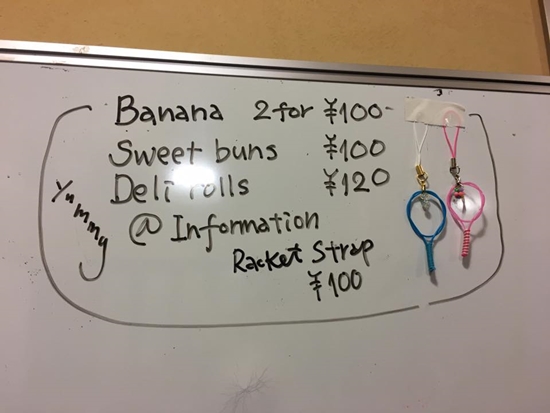 Banana 2 for ¥100-
Sweet buns ¥100
Deli rolls ¥120
@ Information
Racket Strap
¥100
Yummy